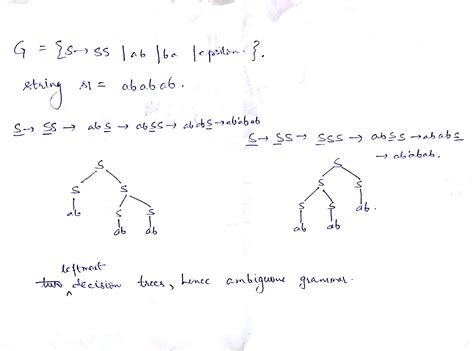 G = {S→ SS | ab | ba | epsilon.}.
string s1 = ababab.
S → SS → abS → abSS → ababS → ababab
S → SS → SSS → abSS → ababS
→ ababab.
S S
S S S S
ab S S S S ab.
ab ab ab ab
leftmost
two decision trees, hence ambiguous grammar.